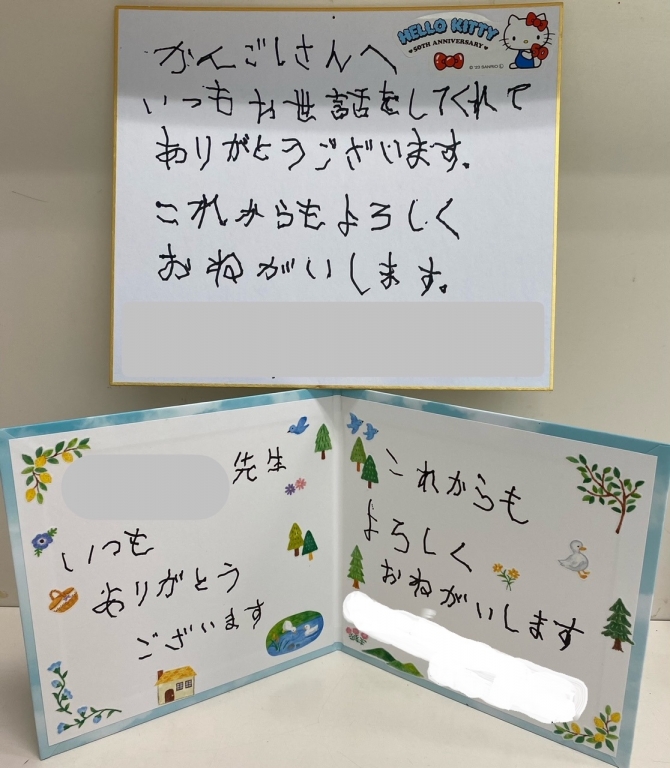 HELLO KITTY
50TH ANNIVERSARY
かんごしさんへ
いつもお世話をしてくれて
ありがとうございます。
これからもよろしく
おねがいします。
先生
いつも
ありがとう
ございます
これからも
よろしく
おねがいします